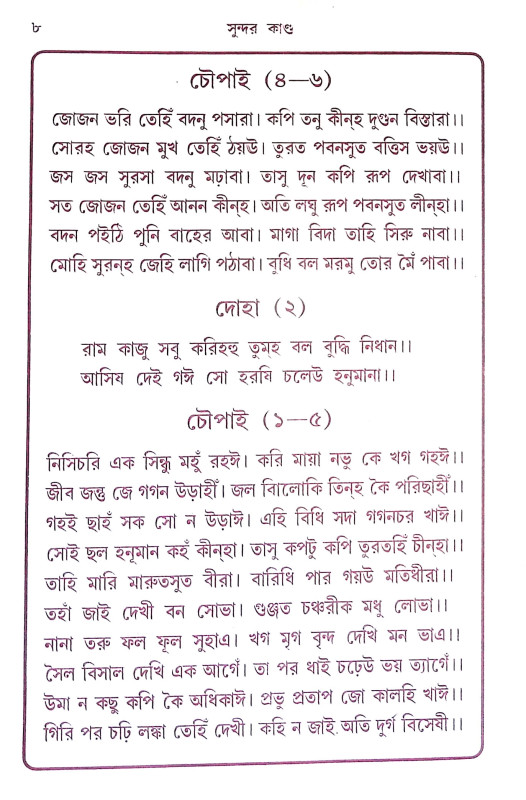 ৮
সুন্দর কাণ্ড
চৌপাই (৪—৬)
জোজন ভরি তেহিঁ বদনু পসারা। কপি তনু কীন্‌হ দুণ্ডন বিস্তারা।।
সোরহ জোজন মুখ তেহিঁ ঠয়ঊ। তুরত পবনসুত বত্তিস ভয়ঊ।।
জস জস সুরসা বদনু মঢ়াবা। তাসু দূন কপি রূপ দেখাবা।।
সত জোজন তেহিঁ আনন কীন্‌হ। অতি লঘু রূপ পবনসুত লীন্‌হা।।
বদন পইঠি পুনি বাহের আবা। মাগা বিদা তাহি সিরু নাবা।।
মোহি সুরন্‌হ জেহি লাগি পঠাবা। বুধি বল মরমু তোর মৈঁ পাবা।।
দোহা (২)
রাম কাজু সবু করিহহু তুম্‌হ বল বুদ্ধি নিধান।।
আসিষ দেই গঈ সো হরষি চলেউ হনুমানা।।
চৌপাই (১—৫)
নিসিচরি এক সিন্ধু মহুঁ রহঈ। করি মায়া নভু কে খগ গহঈ।।
জীব জন্তু জে গগন উড়াহীঁ। জল বিালোকি তিন্‌হ কৈ পরিছাহীঁ।।
গহই ছাহঁ সক সো ন উড়াঈ। এহি বিধি সদা গগনচর খাঈ।।
সোই ছল হনূমান কহঁ কীন্‌হা। তাসু কপটু কপি তুরতহিঁ চীন্‌হা।।
তাহি মারি মারুতসুত বীরা। বারিধি পার গয়উ মতিধীরা।।
তহাঁ জাই দেখী বন সোভা। গুঞ্জত চঞ্চরীক মধু লোভা।।
নানা তরু ফল ফূল সুহাএ। খগ মৃগ বৃন্দ দেখি মন ভাএ।।
সৈল বিসাল দেখি এক আগেঁ। তা পর ধাই চঢ়েউ ভয় ত্যাগেঁ।।
উমা ন কছু কপি কৈ অধিকাঈ। প্রভু প্রতাপ জো কালহি খাঈ।।
গিরি পর চঢ়ি লঙ্কা তেহিঁ দেখী। কহি ন জাই অতি দুর্গ বিসেষী।।